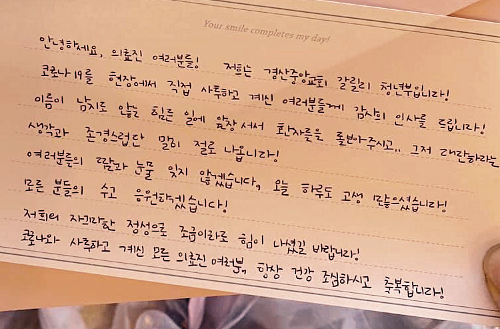 Your smile completes my day!
안녕하세요, 의료진 여러분들! 저희는 경산중앙교회 갈릴리 청년부입니다!
코로나19를 현장에서 직접 사투하고 계신 여러분들께 감사의 인사를 드립니다!
이름이 남지도 않을 힘든 일에 앞장서서 환자들을 돌봐주시고.. 그저 대단하다는
생각과 존경스럽단 말이 절로 나옵니다!
여러분들의 땀과 눈물 잊지 않겠습니다, 오늘 하루도 고생 많으셨습니다!
모든 분들의 수고 응원하겠습니다!
저희의 자그마한 정성으로 조금이라도 힘이 나셨길 바랍니다!
코로나와 사투하고 계신 모든 의료진 여러분, 항상 건강 조심하시고 축복합니다!